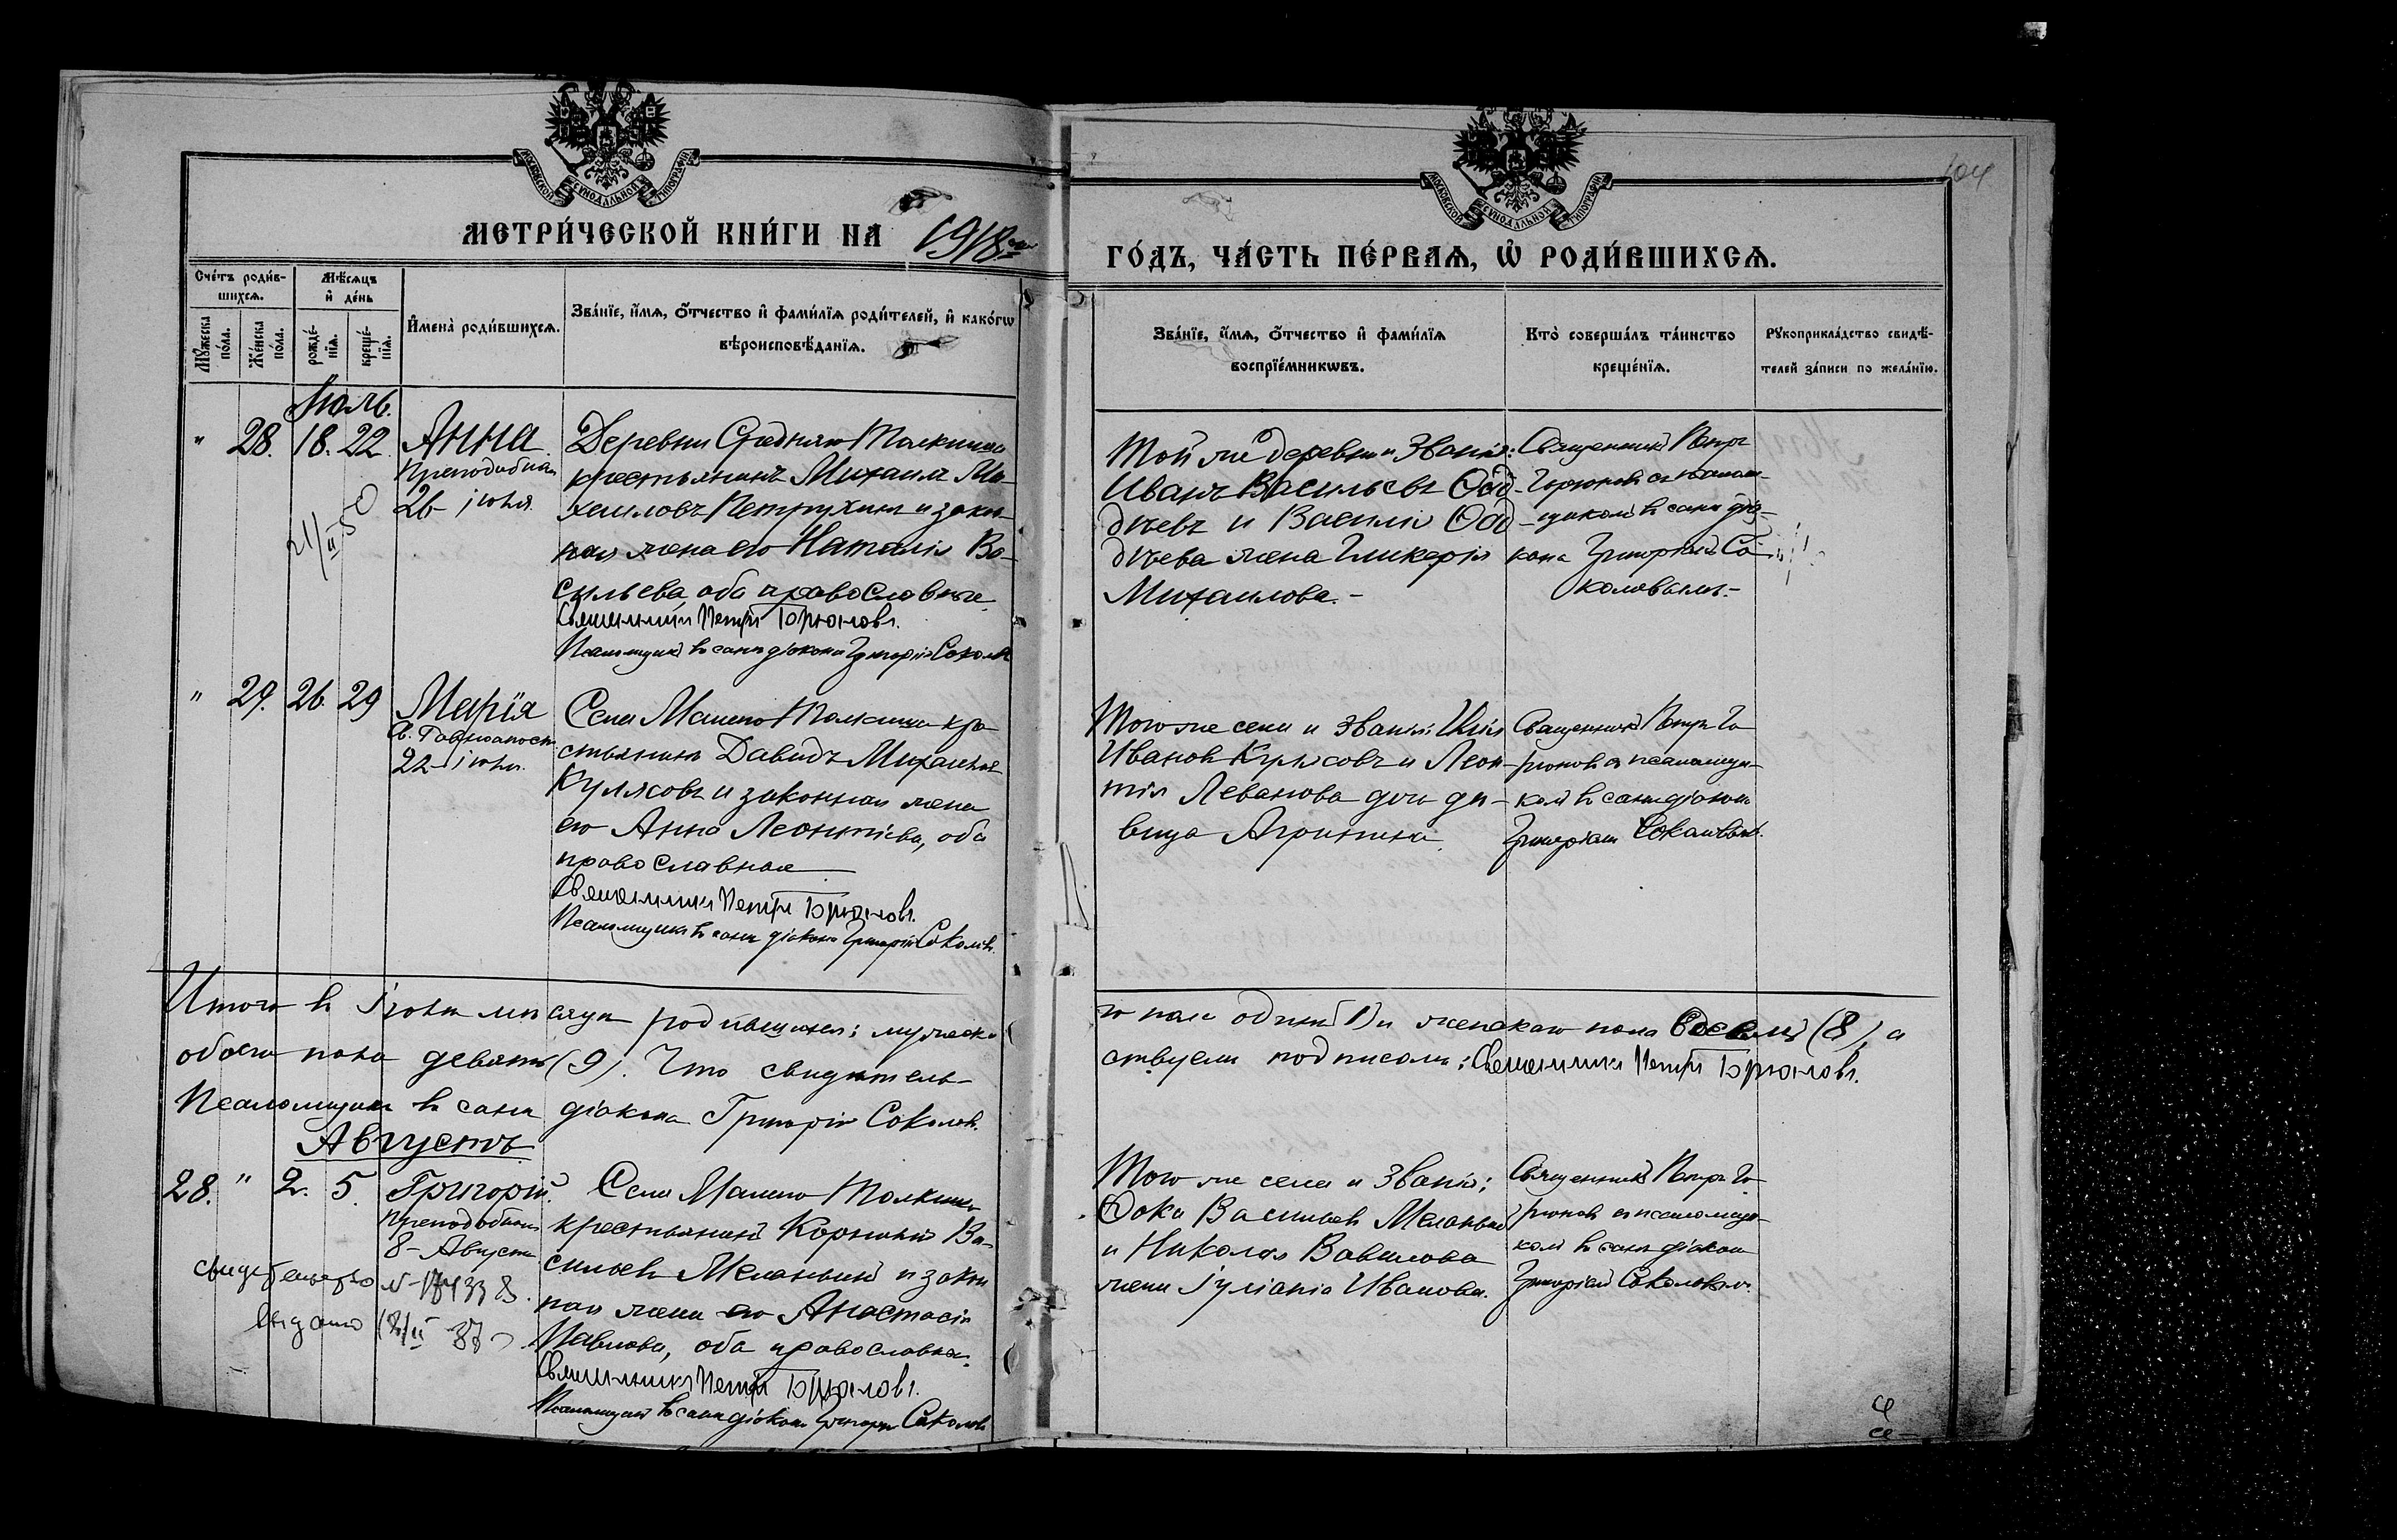 104
МОСКОВСКОЙ СѴНОДАЛЬНОЙ ТИПОГРАФІИ
МОСКОВСКОЙ СѴНОДАЛЬНОЙ ТИПОГРАФІИ
МЕТРИ́ЧЕСКОЙ КНИ́ГИ НА 1918
ГО́ДЪ, ЧА́СТЬ ПЕ́РВАѦ, Ѽ РОДИ́ВШИХСѦ.
Сче́тъ роди́в-
шихсѧ.
Мꙋ́жеска
по́ла.
Же́нска
по́ла.
Мѣ́сѧцъ
и҆ де́нь
рожде́-
нїѧ.
креще́-
нїѧ.
И҆мена̀ роди́вшихсѧ.
Зва́нїе, и҆́мѧ, ѻ҆́тчество и҆ фами́лїѧ роди́телей, и҆ како́гѡ
вѣроисповѣ́данїѧ.
Зва́нїе, и҆́мѧ, ѻ҆́тчество и҆ фами́лїѧ
воспрїе́мникѡвъ.
Кто̀ соверша́лъ та́инство
креще́нїѧ.
Рꙋкоприкла́дство свидѣ́-
телей за́писи по жела́нїю.
Іюль.
" 28. 18. 22.
Анна
Преподобная
26 іюня
Деревни Средняго Толкиша
крестьянинъ Михаилъ Ми-
хаиловъ Петрухинъ и закон-
ная жена его Наталія Ва-
сильева, оба православные.
Священникъ Петръ
Псаломщикъ въ санѣ діакона Григорій Соколовъ
Той же деревни и званія:
Иванъ Васильевъ
и Василія
жена Гликерія
Михаилова.-
Священникъ Петръ
съ псалом-
щикомъ въ санѣ діа-
кона Григоріемъ Со-
коловымъ.-
" 29. 26. 29
Марія
Св. Равноапост.
22 іюля.
Села Малаго Толкиша кре-
стьянинъ Давидъ Михаиловъ
Кулясовъ и законная жена
его Анна Леонтіева, оба
православные
Священникъ Петръ
Псаломщикъ въ санѣ діакона Григорій Соколовъ.
Того же села и званія: Илія
Ивановъ Кулясовъ и Леон-
тія Леванова дочь дѣ-
вица Агрипина.
Священникъ Петръ
съ псаломщи-
комъ въ санѣ діакона
Григоріемъ Соколовымъ.
Итого въ Іюлѣ мѣсяцѣ родившихся: мужеска-
го пола одинъ (1) и женскаго пола восемь (8), а
обоего пола девять (9). Что свидѣтель-
ствуемъ подписомъ: Священникъ Петръ
Псаломщикъ въ санѣ діакона Григорій Соколовъ.
Августъ
28. " 2. 5.
Григорій
Преподобный
8 Августа
свидетельство
выдано
Села Малаго Толкиша
крестьянинъ Корнилій Ва-
сильевъ Меланьинъ и закон-
ная жена его Анастасія
Павлова, оба православные.
Священникъ Петръ
Псаломщикъ въ санѣ діакона Григорій Соколовъ
Того же села и званія:
Ѳока Васильевъ Меланьинъ
и Николая Вавилова
жена Іуліанія Иванова.
Священникъ Петръ
съ псаломщи-
комъ въ санѣ діакона
Григоріемъ Соколовымъ.